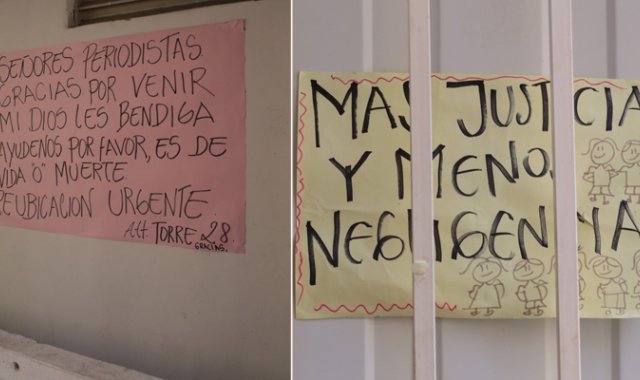 SEÑORES PERIODISTAS
GRACIAS POR VENIR
MI DIOS LES BENDIGA
AYUDENOS POR FAVOR, ES DE
VIDA O' MUERTE
REUBICACION URGENTE
Att. TORRE 28.
GRACIAS.
MAS JUSTICIA
Y MENOS
NEGLIGENCIA